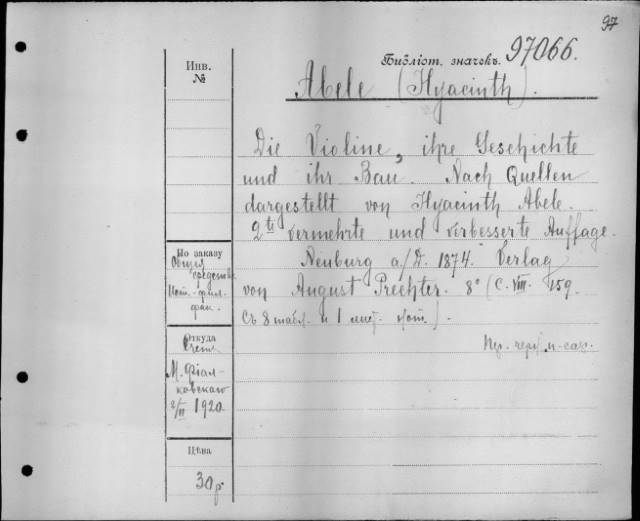 97
Библіот. значекъ. 97066.
Инв. №
Abele (Hyacinth).
Die Violine, ihre Geschichte
und ihr Bau. Nach Quellen
dargestellt von Hyacinth Abele.
2te vermehrte und verbesserte Auflage.
Neuburg a/D. 1874. Verlag
von August Prechter. 8° (С. VIII. 159.
Съ 8 табл. и 1 нот.).
По заказу
Общія
средства
Ист.-фил.
фак.
Откуда
Счетъ
М. Фіал-
ковскаго
1920.
Цѣна
30 р.